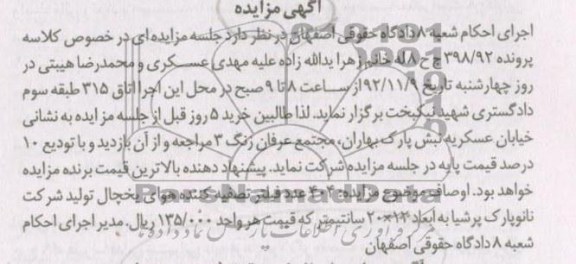 آگهی مزایده
اجرای احکام شعبه ۸ دادگاه حقوقی اصفهان در نظر دارد جلسه مزایده ای در خصوص کلاسه
پرونده ۳۹۸/۹۲ ج ح ۸ له خانم زهرا یدالله زاده علیه مهدی عسکری و محمدرضا هیبتی در
روز چهارشنبه تاریخ ۹۲/۱۱/۹ از ساعت ۸ تا ۹ صبح در محل این اجرا اتاق ۳۱۵ طبقه سوم
دادگستری شهید نیکبخت برگزار نماید. لذا طالبین خرید ۵ روز قبل از جلسه مزایده به نشانی
خیابان عسکریه نبش پارک بهاران، مجتمع عرفان زنگ ۳ مراجعه و از آن بازدید و با تودیع ۱۰
درصد قیمت پایه در جلسه مزایده شرکت نماید. پیشنهاد دهنده بالاترین قیمت برنده مزایده
خواهد بود. اوصاف موضوع مزایده: ۴۰۴ عدد فیلتر تصفیه کننده هوای یخچال تولید شرکت
نانوپارک پرشیا به ابعاد ۱۴*۲۰ سانتیمتر که قیمت هر واحد ۱۳۵/۰۰۰ ریال. مدیر اجرای احکام
شعبه ۸ دادگاه حقوقی اصفهان